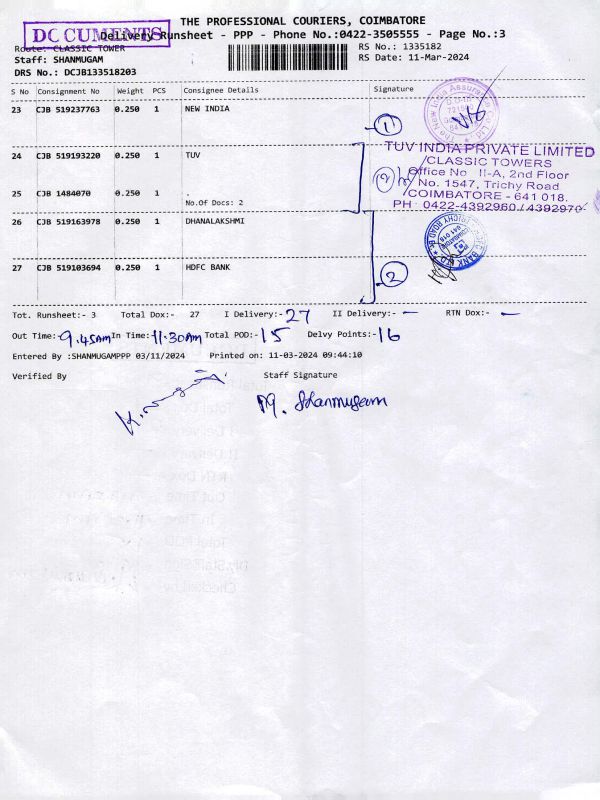 THE PROFESSIONAL COURIERS, COIMBATORE
DOCUMENTS
Delivery Runsheet - PPP - Phone No.:0422-3505555 - Page No.:3
Route: CLASSIC TOWER
RS No.: 1335182
Staff: SHANMUGAM
RS Date: 11-Mar-2024
DRS No.: DCJB133518203
S No Consignment No Weight PCS Consignee Details Signature
23 CJB 519237763 0.250 1 NEW INDIA
1
24 CJB 519193220 0.250 1 TUV
TUV INDIA PRIVATE LIMITED
CLASSIC TOWERS
Office No II-A, 2nd Floor
No. 1547, Trichy Road
COIMBATORE - 641 018.
PH : 0422-4392960 / 4392970
25 CJB 1484070 0.250 1 .
No.Of Docs: 2
26 CJB 519163978 0.250 1 DHANALAKSHMI
27 CJB 519103694 0.250 1 HDFC BANK
2
Tot. Runsheet:- 3 Total Dox:- 27 I Delivery:- 27 II Delivery:- — RTN Dox:- —
Out Time:- 9.45AM In Time:- 11.30AM Total POD:- 15 Delvy Points:- 16
Entered By :SHANMUGAMPPP 03/11/2024 Printed on: 11-03-2024 09:44:10
Verified By Staff Signature
M. Shanmugam